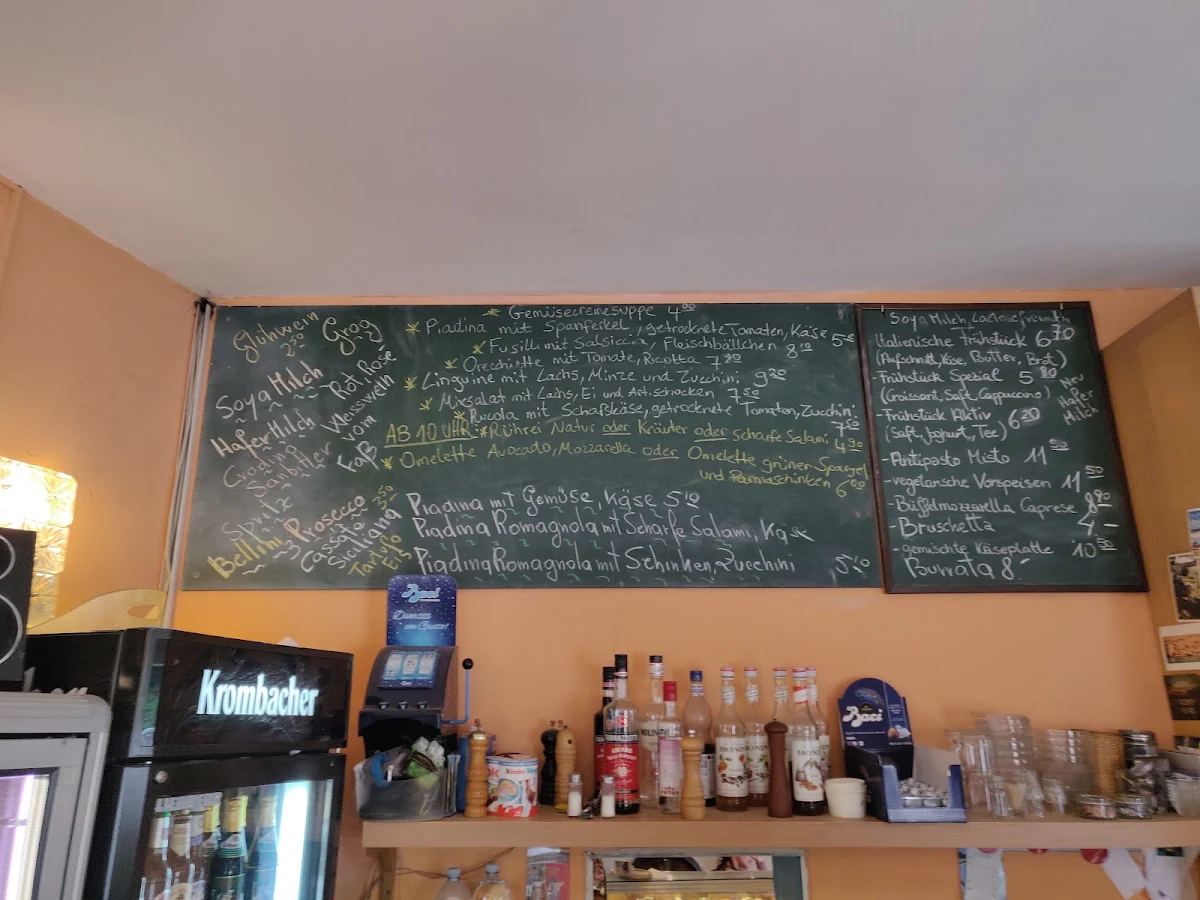 Glühwein
2.50
Grog
Soya Milch
Hafer Milch
Rot Rosé
Weisswein
vom
Faß
Spritz
Bellini
Prosecco
3.50
Cassata
Siciliana
Tartufo
Eis
* Gemüsecremesuppe 4.00
* Piadina mit Spanferkel, getrocknete Tomaten, Käse
* Fusilli mit Salsiccia, Fleischbällchen 8.10
* Orecchiette mit Tomate, Ricotta 7.90
* Linguine mit Lachs, Minze und Zucchini 9.20
* Mixsalat mit Lachs, Ei und Artischocken 7.50
* Rucola mit Schafskäse, getrocknete Tomaten, Zucchini
7.50
AB 10 UHR: * Rührei Natur oder Kräuter oder scharfe Salami 4.90
* Omelette Avocado, Mozzarella oder Omelette grüner Spargel
und Parmaschinken 6.00
Piadina mit Gemüse, Käse 5.10
Piadina Romagnola mit Scharfe Salami, Käse
Piadina Romagnola mit Schinken, Zucchini
Soya Milch,
Italienische Frühstück 6.70
(Aufschnitt, Käse, Butter, Brot)
- Frühstück Spezial 5.80
(Croissant, Saft, Cappuccino)
- Frühstück Aktiv 6.20
(Saft, Joghurt, Tee)
Neu
Hafer
Milch
- Antipasto Misto 11.50
- vegetarische Vorspeisen 11.50
- Büffelmozzarella Caprese 8.90
- Bruschetta 4,-
- gemischte Käseplatte 10.50
Burrata 8.-
Baci
Krombacher
Baci
MONIN